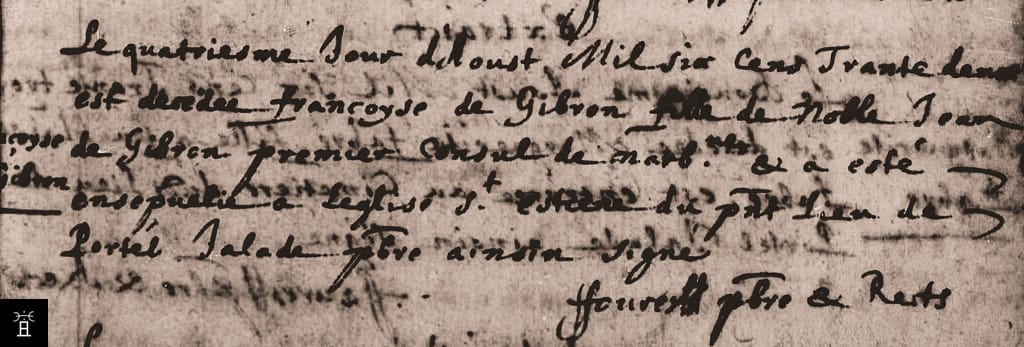 Le quatriesme Jour d'Aoust Mil six Cens Trante deux
est decedee françoyse de Gibron fille de Noble Jean
de Gibron premier Consul de narb.^ne & a esté
coyse
Gibron
ensepvelie a Leglise S.^t estiene du pnt Lieu de
Portel Jalade pbre ainsin signé
ffoures pbre & Rects